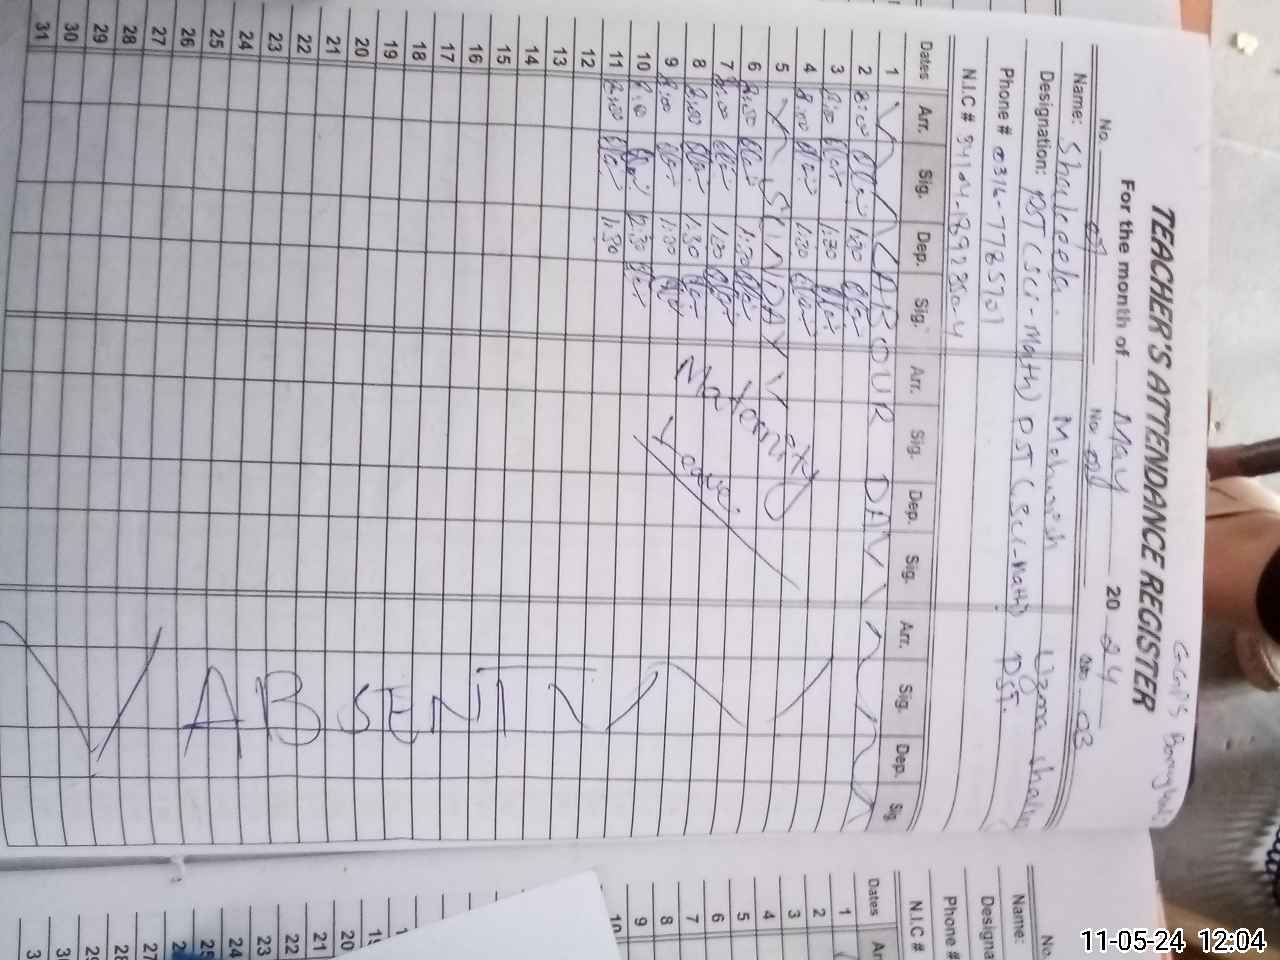 TEACHER'S ATTENDANCE REGISTER
For the month of May 20 24
No. 01 No. 02 No. 03
Name: Shakeela Mehwish Uzma
Designation: PST (Sci-Math) PST (Sci-Math) PST.
Phone # 0316-7785701
N.I.C #
Dates Arr. Sig. Dep. Sig. Arr. Sig. Dep. Sig. Arr. Sig. Dep. Sig.
1 LABOUR DAY
2 8:00 1:30
3 8:00 1:30
4 8:00 1:30
5 SUNDAY
6 8:00 1:30
7 8:00 1:30
8 8:00 1:30
9 8:00 1:30
10 8:00 12:30
11 8:00 1:30
12
13
14
15
16
17
18
19
20
21
22
23
24
25
26
27
28
29
30
31
Maternity
Leave.
ABSENT
No.
Name:
Designa
Phone #
N.I.C #
Dates Ar
1
2
3
4
5
6
7
8
9
10
20
21
22
23
24
25
27
28
29
11-05-24 12:04